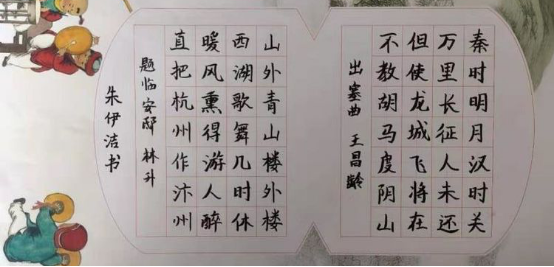 秦时明月汉时关
万里长征人未还
但使龙城飞将在
不教胡马度阴山
出塞曲 王昌龄
山外青山楼外楼
西湖歌舞几时休
暖风熏得游人醉
直把杭州作汴州
题临安邸 林升
朱伊洁书